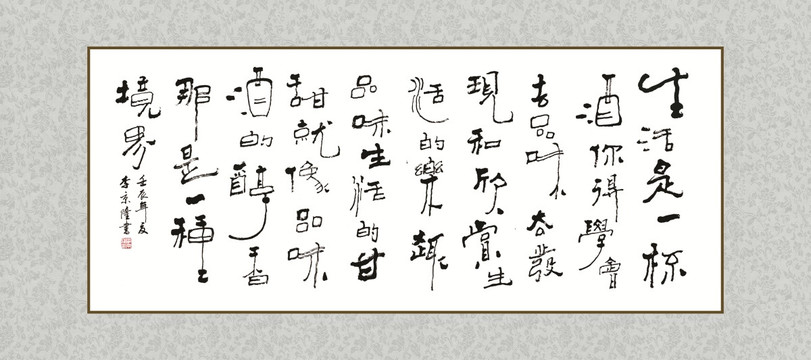 生活是一杯
酒你得學會
去品味去發
現和欣賞生
活的樂趣
品味生活的甘
甜就像品味
酒的醇香
那是一種
境界
壬辰年夏
李京隆書